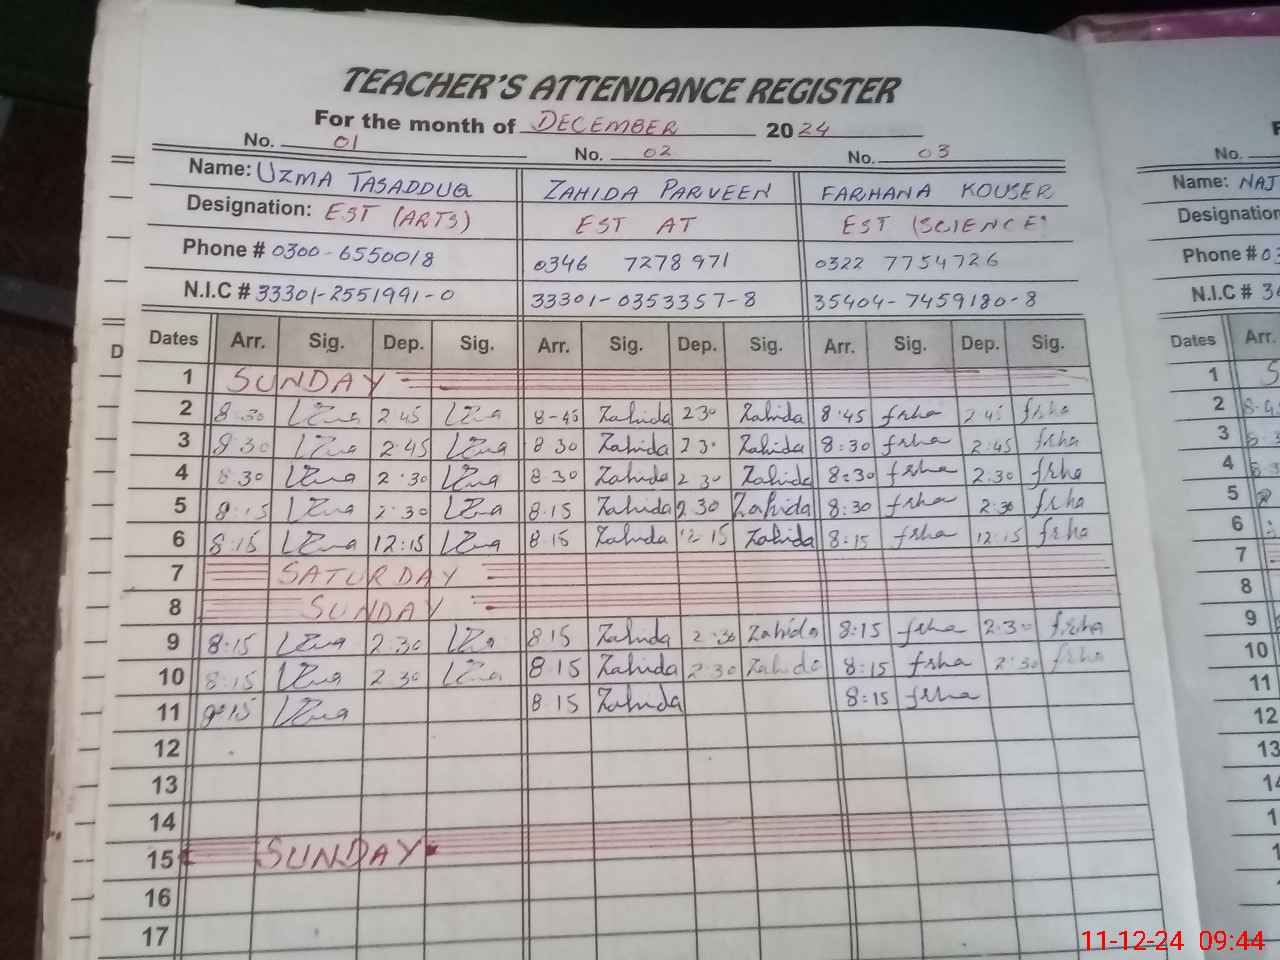 TEACHER'S ATTENDANCE REGISTER
For the month of DECEMBER 2024
No. 01 No. 02 No. 03 No.
Name: UZMA TASADDUQ ZAHIDA PARVEEN FARHANA KOUSER Name: NAJ
Designation: EST (ARTS) EST AT EST (SCIENCE) Designation
Phone # 0300-6550018 0346 7278971 0322 7754726 Phone # 03
N.I.C # 33301-2551991-0 33301-0353357-8 35404-7459180-8 N.I.C # 3
Dates Arr. Sig. Dep. Sig. Arr. Sig. Dep. Sig. Arr. Sig. Dep. Sig. Dates Arr.
1 SUNDAY 1 S
2 8:30 Uzma 2:45 Uzma 8-45 Zahida 2 30 Zahida 8:45 frha 2:45 frha 2
3 8:30 Uzma 2:45 Uzma 8 30 Zahida 2 3 Zahida 8:30 frha 2:45 frha 3
4 8:30 Uzma 2:30 Uzma 8 30 Zahida 2 30 Zahida 8:30 frha 2:30 frha 4
5 8:15 Uzma 2:30 Uzma 8.15 Zahida 2.30 Zahida 8:30 frha 2:30 frha 5
6 8:15 Uzma 12:15 Uzma 8.15 Zahida 12 15 Zahida 8:15 frha 12:15 frha 6
7 SATURDAY 7
8 SUNDAY 8
9 8:15 Uzma 2:30 Uzma 8 15 Zahida 2:30 Zahida 8:15 frha 2:30 frha 9
10 8:15 Uzma 2:30 Uzma 8 15 Zahida 2:30 Zahida 8:15 frha 2:30 frha 10
11 8:15 Uzma 8 15 Zahida 8:15 frha 11
12 12
13 13
14
15 SUNDAY
16
17
11-12-24 09:44